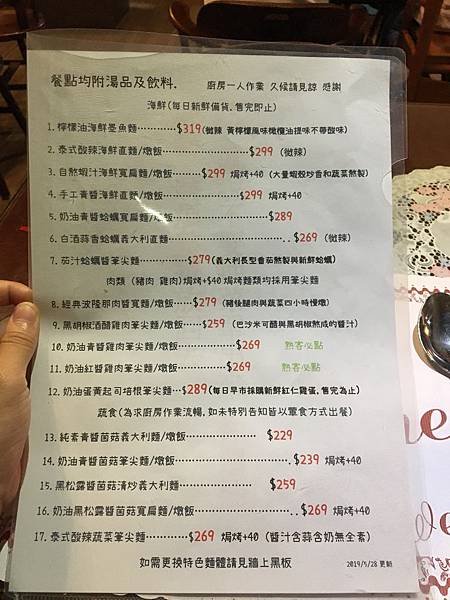 餐點均附湯品及飲料. 廚房一人作業 久候請見諒 感謝
海鮮(每日新鮮備貨,售完即止)
1. 檸檬油海鮮墨魚麵…………$319(微辣 黃檸檬風味橄欖油提味不帶酸味)
2. 泰式酸辣海鮮直麵/燉飯……………………$299 (微辣)
3. 自熬蝦汁海鮮寬扁麵/燉飯………$299 焗烤+40 (大量蝦殼炒香和蔬菜熬製)
4. 手工青醬海鮮直麵/燉飯……………$299 焗烤+40
5. 奶油青醬蛤蠣寬扁麵/燉飯………………………$289
6. 白酒蒜香蛤蠣義大利直麵……………………………..$269 (微辣)
7. 茄汁蛤蠣醬筆尖麵…………$279(義大利長型番茄熬製與新鮮蛤蠣)
肉類 (豬肉 雞肉)焗烤+$40 焗烤麵類均採用筆尖麵
8. 經典波隆那肉醬寬麵/燉飯……$279 (豬後腿肉與蔬菜四小時慢燉)
9. 黑胡椒酒醋雞肉筆尖麵/燉飯……$259 (巴沙米可醋與黑胡椒熬成的醬汁)
10. 奶油青醬雞肉筆尖麵/燉飯………………$269 熟客必點
11. 奶油紅醬雞肉筆尖麵/燉飯……………$269 熟客必點
12. 奶油蛋黃起司培根筆尖麵/燉飯…$289(每日早市採購新鮮紅仁雞蛋,售完為止)
蔬食(為求廚房作業流暢,如未特別告知皆以葷食方式出餐)
13. 純素青醬菌菇義大利麵/燉飯………………… $229
14. 奶油青醬菌菇筆尖麵/燉飯……………………………..$239 焗烤+40
15. 黑松露醬菌菇清炒義大利麵………………… $259
16. 奶油黑松露醬菌菇寬扁麵/燉飯…………………………..$269 焗烤+40
17. 泰式酸辣蔬菜筆尖麵…………$269 焗烤+40 (醬汁含蒜含奶無全素)
如需更換特色麵體請見牆上黑板 2019/5/28 更新